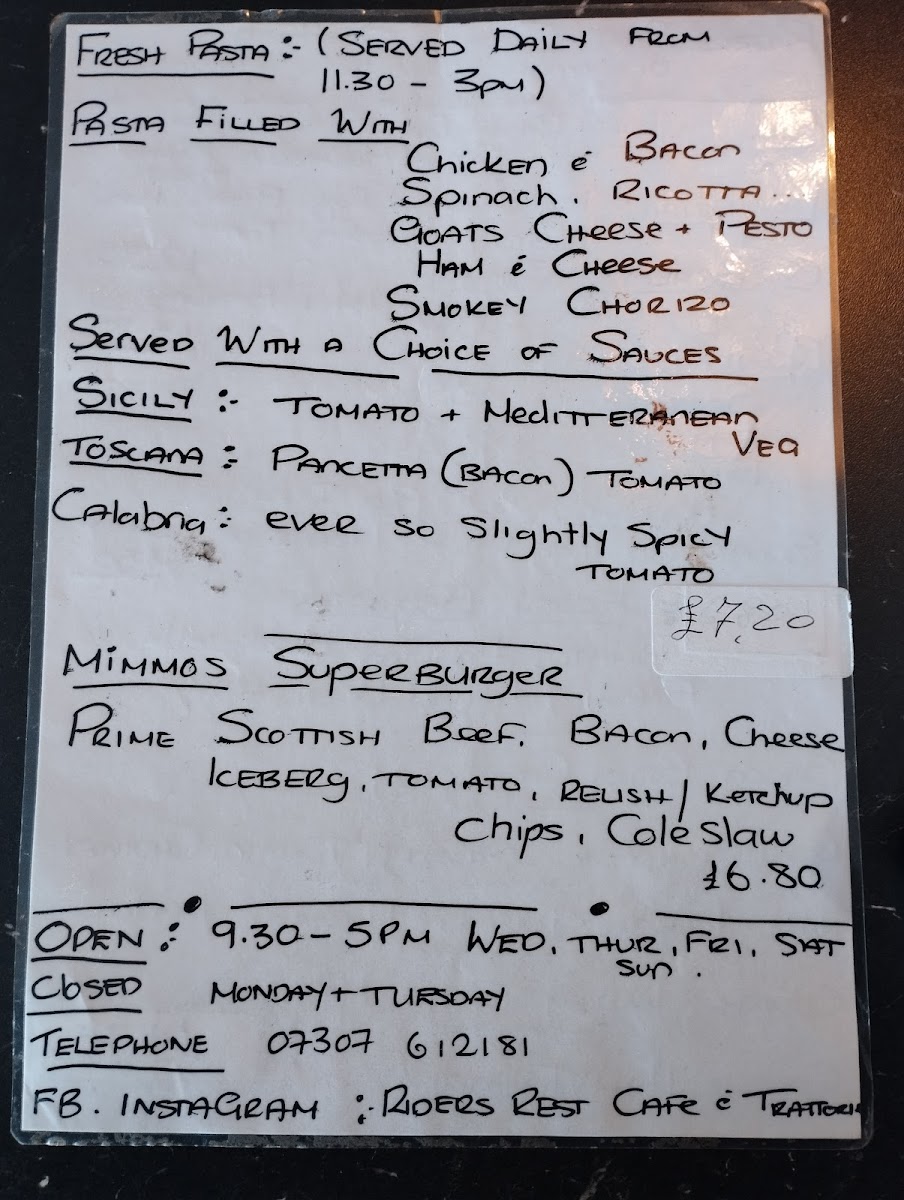 FRESH PASTA :- (SERVED DAILY FROM
11.30 - 3PM)
PASTA FILLED WITH
Chicken & BACON
Spinach, RICOTTA...
GOATS CHeese + PESTO
HAM & CHeese
SMOKEY CHORIZO
SERVED WITH A CHOICE OF SAUCES
SICILY :- TOMATO + MediTTERANEAN
VEG
TOSCANA :- PANCETTA (BACON) TOMATO
Calabria :- EVER SO Slightly SPICY
TOMATO
£7,20
MiMMOS SUPERBURGER
PRIME SCOTTISH BEEF, BACON, Cheese
ICEBERG, TOMATO, RELISH/ Ketchup
Chips, Coleslaw
£6.80
OPEN :- 9.30 - 5PM WED, THUR, FRI, SAT
SUN.
CLOSED MONDAY + TURSDAY
TELEPHONE 07307 612181
FB. INSTAGRAM :- RIDERS REST CAFE & TRATTORIA